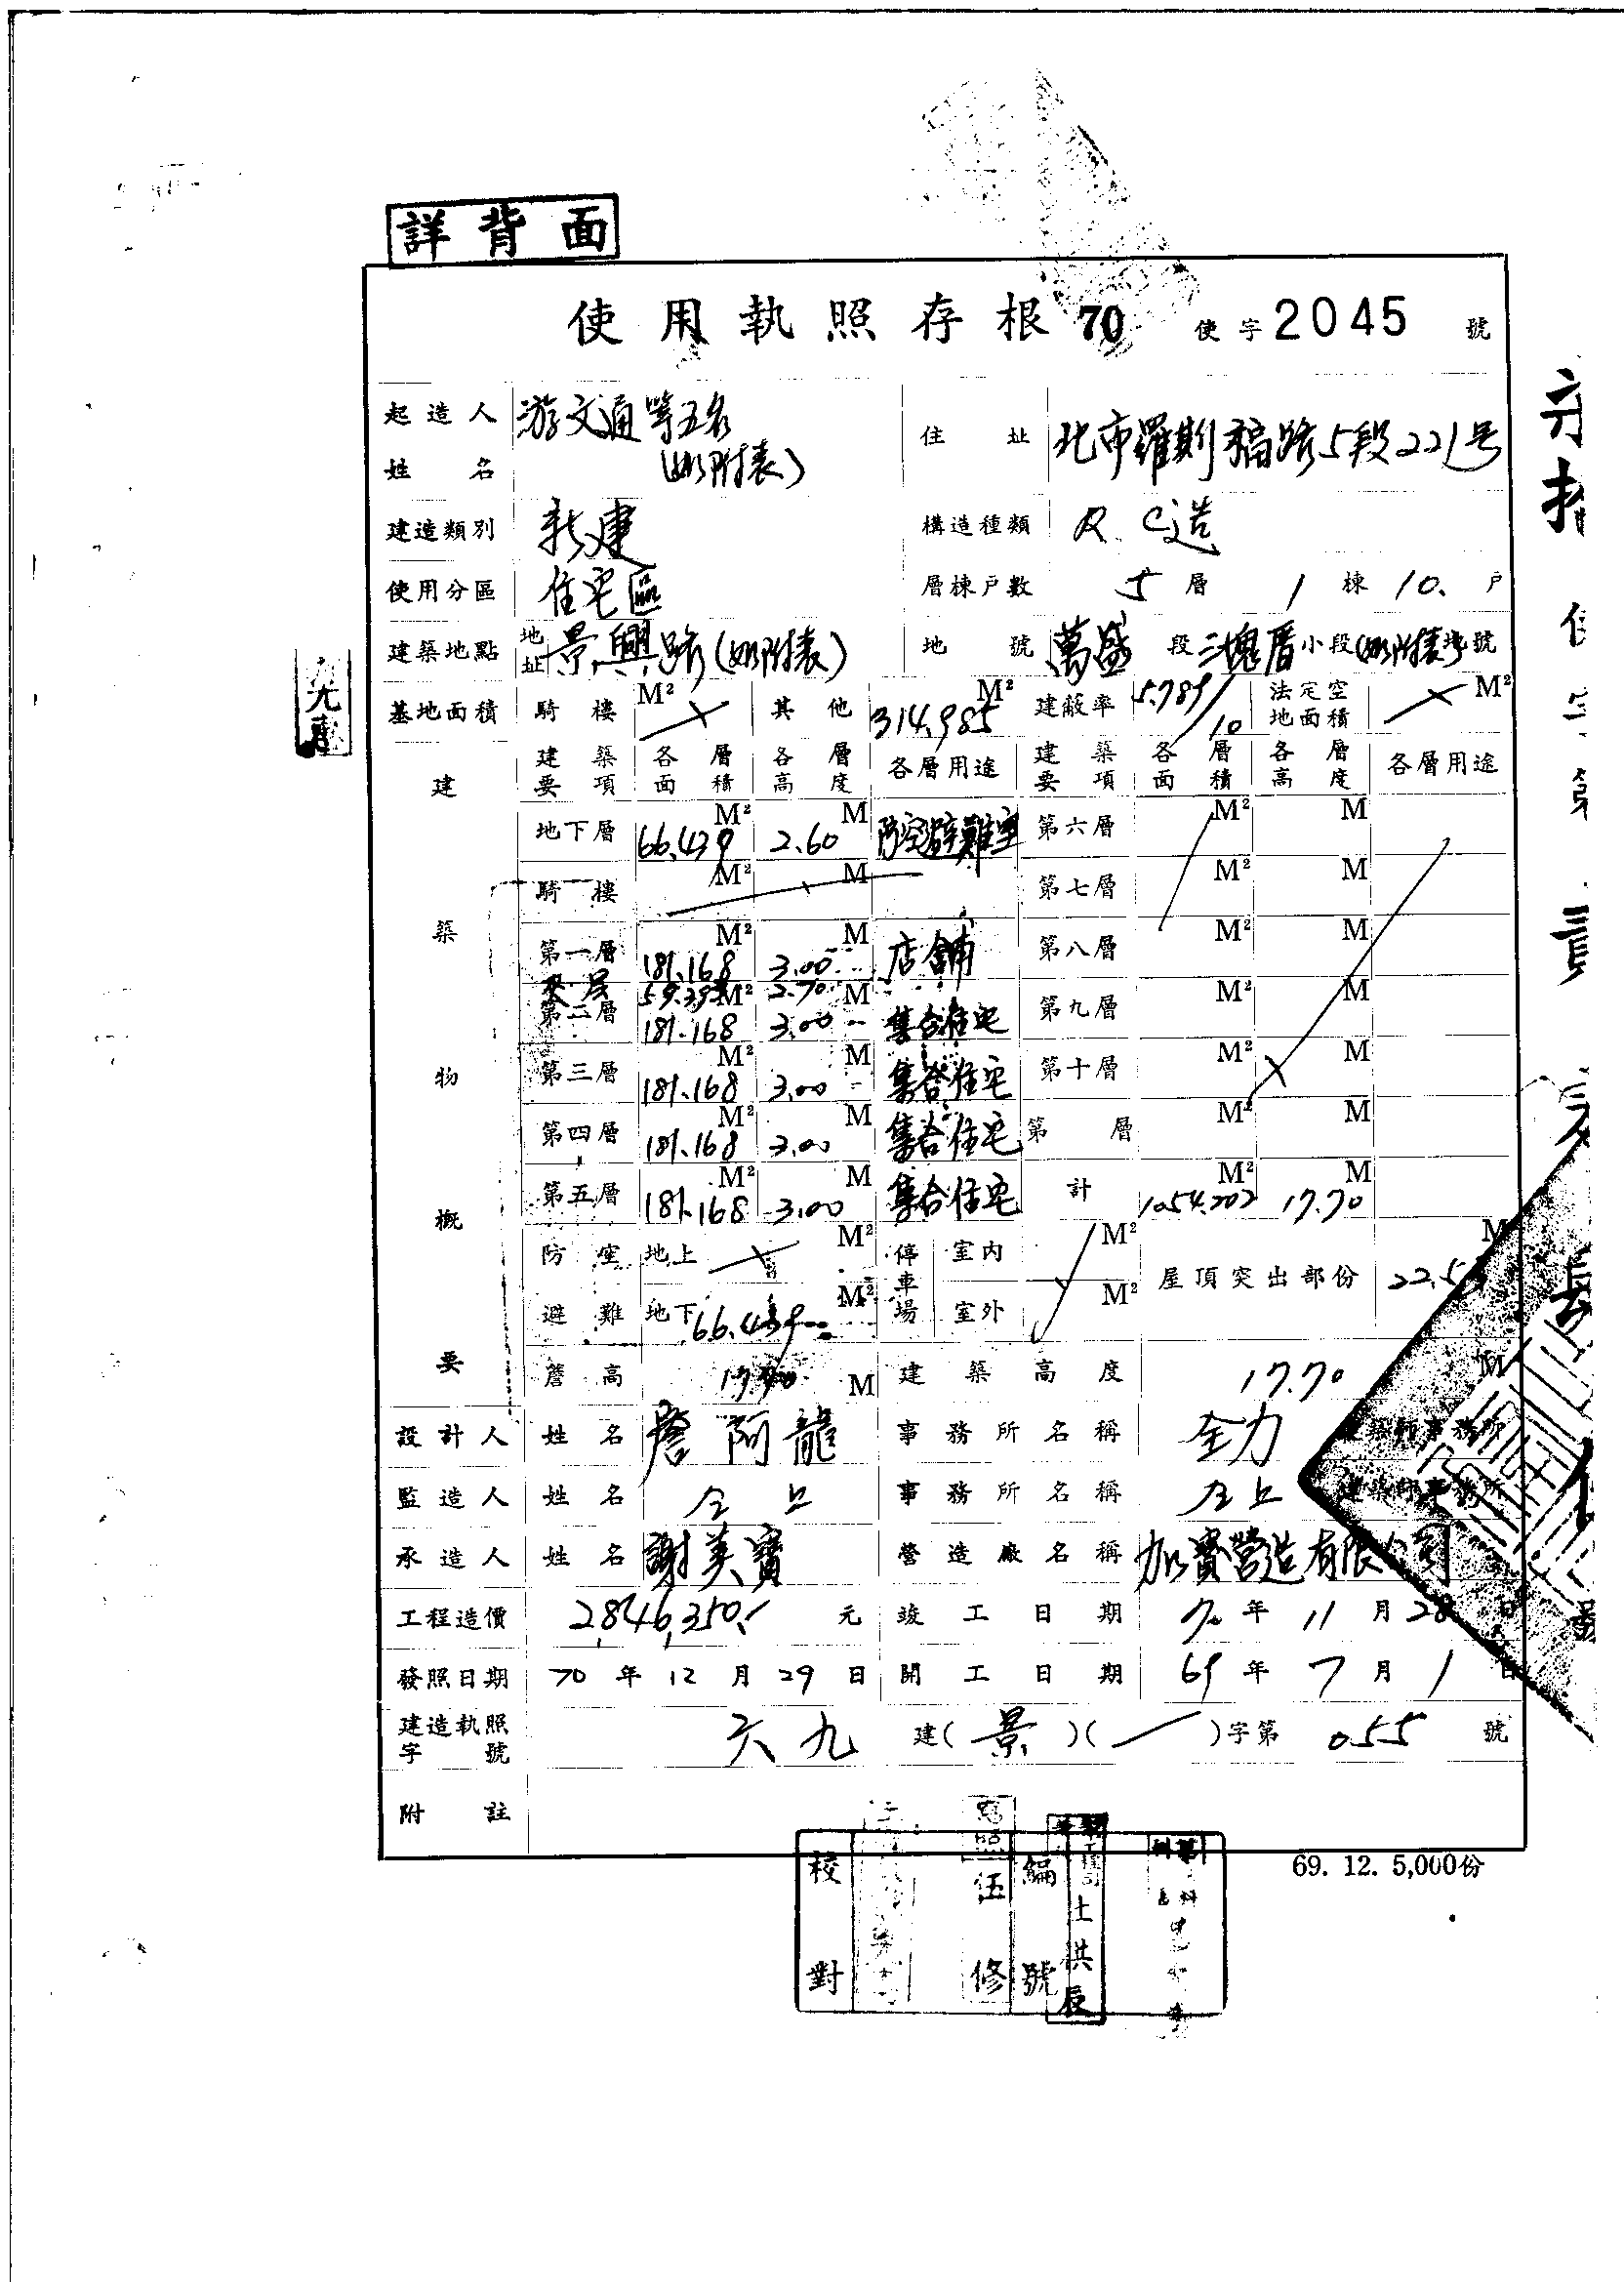 詳背面
使用執照存根 70 使字 2045 號
起造人姓名 游文通等五名(如附表) 住址 北市羅斯福路5段221号
建造類別 新建 構造種類 R.C造
使用分區 住宅區 層棟戶數 5層 1棟 10.戶
建築地點 地址 景興路(如附表) 地號 萬盛段三塊厝小段(如附表)地號
基地面積 騎樓 M² 其他 314.985 M² 建蔽率 5.789/10 法定空地面積 M²
建築物概要
建築要項 各層面積 各層高度 各層用途 建築要項 各層面積 各層高度 各層用途
地下層 66.439 M² 2.60 M 防空避難室 第六層 M² M
騎樓 M² M 第七層 M² M
第一層 181.168 M² 3.00 M 店舖 第八層 M² M
夾层 M² 2.70 M
第二層 181.168 3.00 集合住宅 第九層 M² M
第三層 181.168 M² 3.00 M 集合住宅 第十層 M² M
第四層 181.168 M² 3.00 M 集合住宅 第 層 M² M
第五層 181.168 M² 3.00 M 集合住宅 計 1054.202 M² 17.70 M
防空避難 地上 M² 停車場 室內 M² 屋頂突出部份 M
地下 66.439 M² 室外 M²
簷高 M 建築高度 17.70 M
設計人 姓名 詹阿龍 事務所名稱 全力 建築師事務所
監造人 姓名 仝上 事務所名稱 仝上 建築師事務所
承造人 姓名 謝美寶 營造廠名稱 加寶營造有限公司
工程造價 2,846,350.- 元 竣工日期 70年11月28日
發照日期 70年12月29日 開工日期 69年7月1日
建造執照字號 六九 建(景)(一)字第 055 號
附註
69. 12. 5,000份
校對 編號